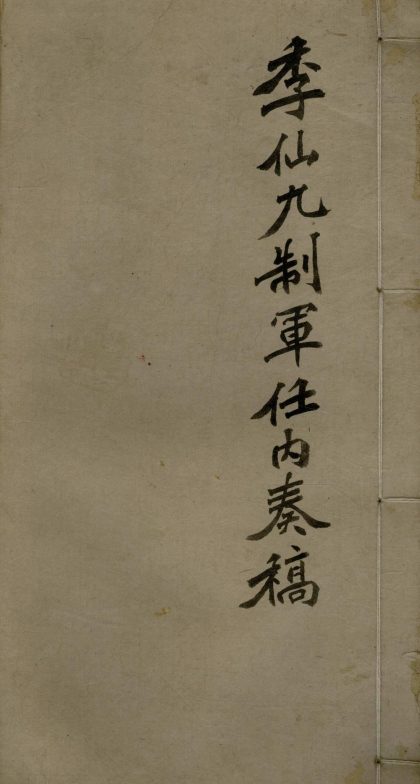 季仙九制軍任内奏稿